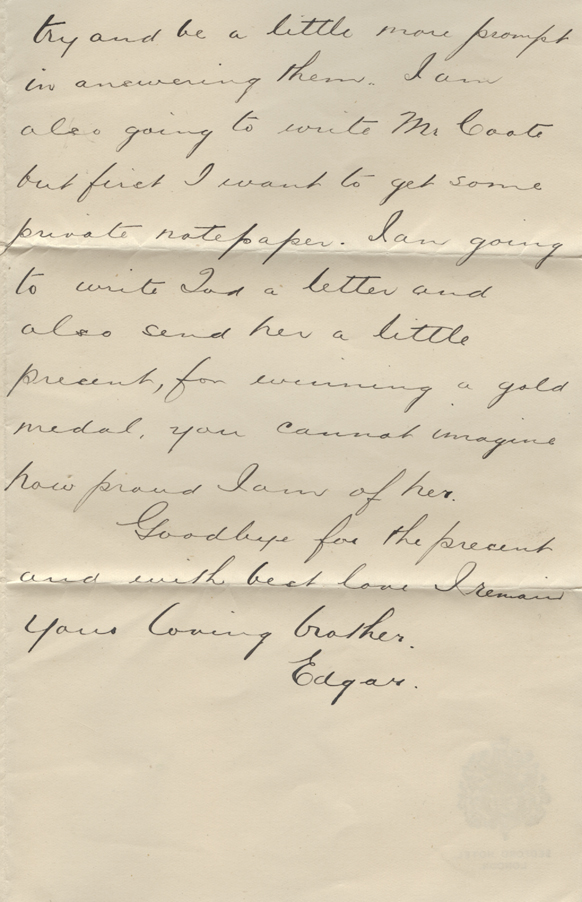 try and be a little more prompt
in answering them. I am
also going to write Mr Coote
but first I want to get some
private notepaper. I am going
to write a letter and
also send her a little
present, for winning a gold
medal, you cannot imagine
how proud I am of her.
Goodbye for the present
and with best love I remain
your loving brother.
Edgar.